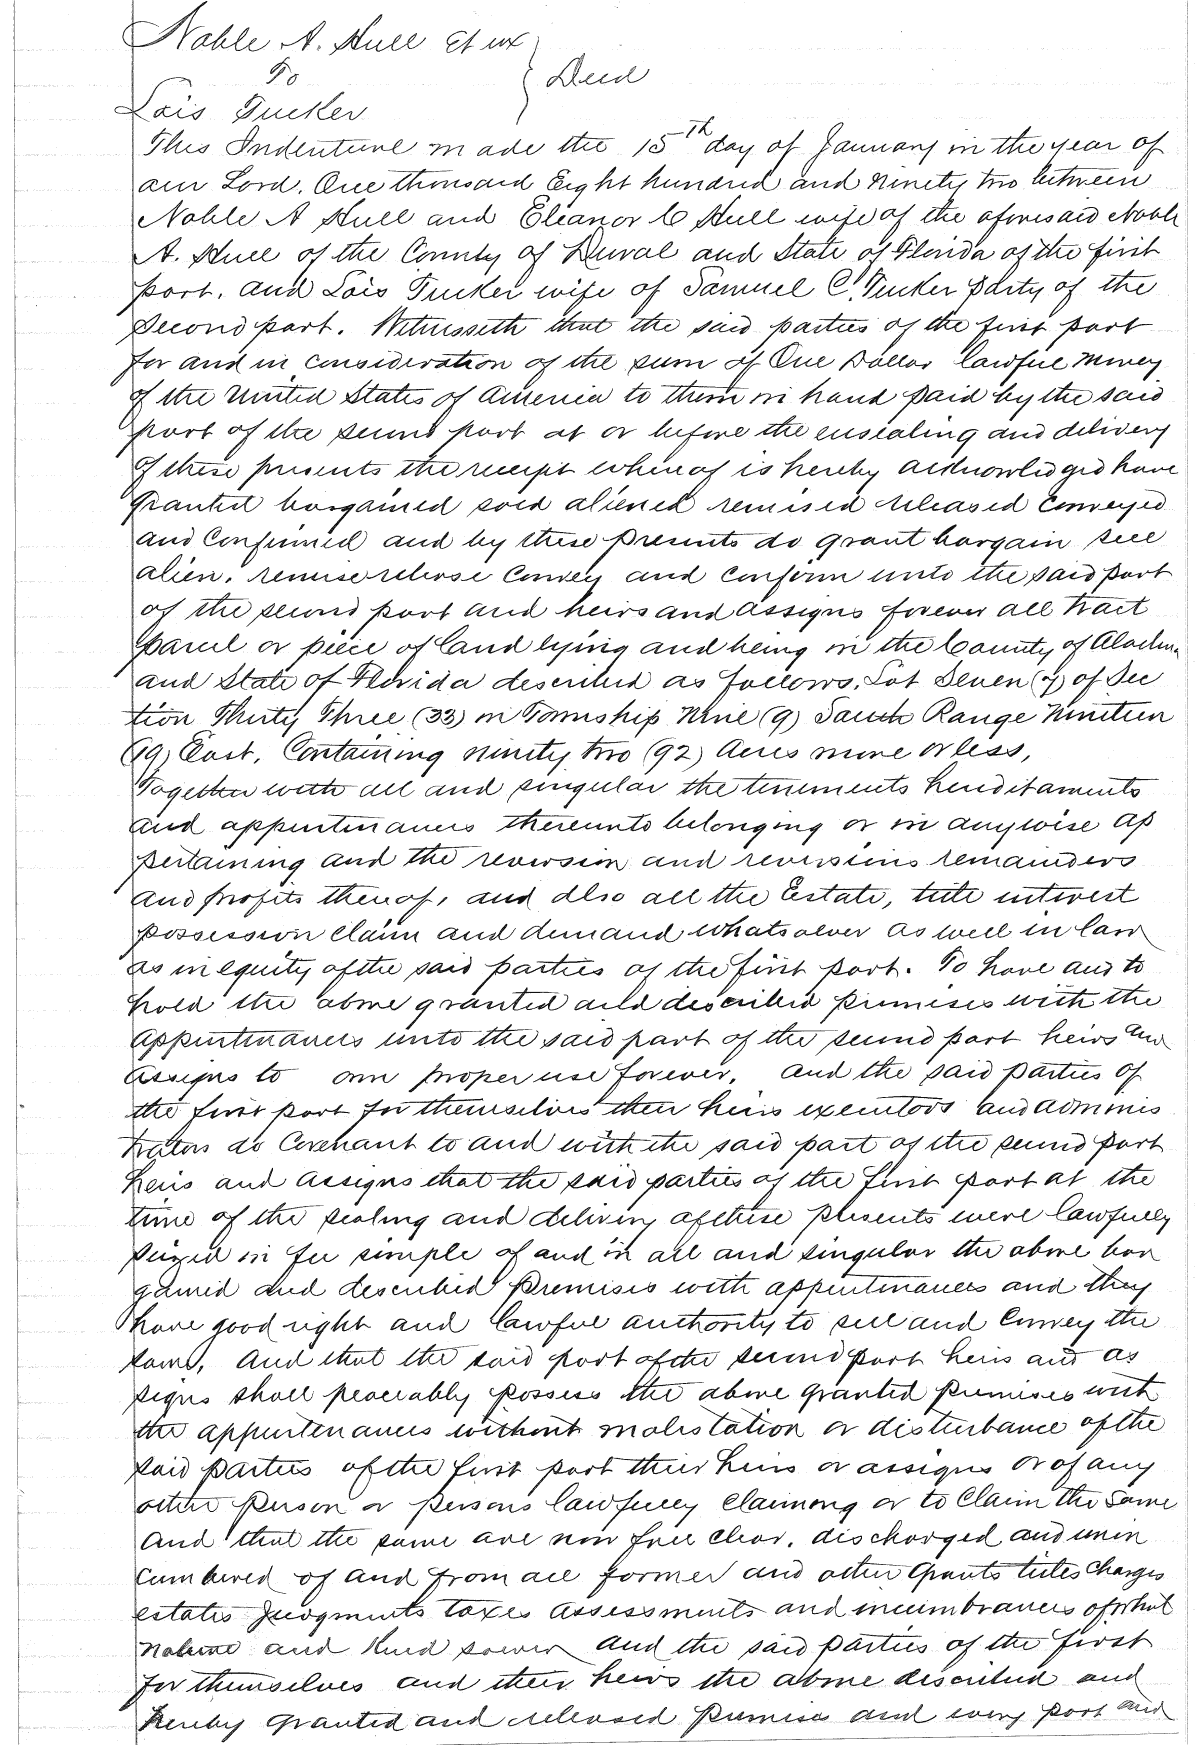 Noble A. Hull et ux
To } Deed
Lois Tucker
This Indenture made the 15th day of January in the year of
our Lord. One thousand Eight hundred and ninety two between
Noble A Hull and Eleanor C Hull wife of the aforesaid Noble
A. Hull of the County of Duval and State of Florida of the first
part, and Lois Tucker wife of Samuel C. Tucker party of the
second part. Witnesseth that the said parties of the first part
for and in consideration of the sum of One Dollar lawful money
of the United States of America to them in hand paid by the said
part of the second part at or before the ensealing and delivery
of these presents the receipt whereof is hereby acknowledged have
granted bargained sold aliened remised released conveyed
and confirmed and by these presents do grant bargain sell
alien. remise release convey and confirm unto the said part
of the second part and heirs and assigns forever all tract
parcel or piece of land lying and being in the County of Alachua
and State of Florida described as follows. Lot Seven (7) of Sec
tion Thirty Three (33) in Township Nine (9) South Range Nineteen
(19) East, Containing ninety two (92) Acres more or less,
Together with all and singular the tenements hereditaments
and appurtenances thereunto belonging or in anywise ap
pertaining and the reversion and reversions remainders
and profits thereof, and also all the Estate, title interest
possession claim and demand whatsoever as well in law
as in equity of the said parties of the first part. To have and to
hold the above granted and described premises with the
appurtenances unto the said part of the second part heirs and
assigns to own proper use forever. And the said parties of
the first part for themselves their heirs executors and adminis
trators do covenant to and with the said part of the second part
heirs and assigns that the said parties of the first part at the
time of the sealing and delivery of these presents were lawfully
seized in fee simple of and in all and singular the above bar
gained and described premises with appurtenances and they
have good right and lawful authority to sell and convey the
same, And that the said part of the second part heirs and as
signs shall peaceably possess the above granted premises with
the appurtenances without molestation or disturbance of the
said parties of the first part their heirs or assigns or of any
other person or persons lawfully claiming or to claim the same
And that the same are now free clear. discharged and unin
cumbered of and from all former and other grants titles charges
estates judgments taxes assessments and incumbrances of what
nature and kind soever And the said parties of the first
for themselves and their heirs the above described and
hereby granted and released premises and every part and